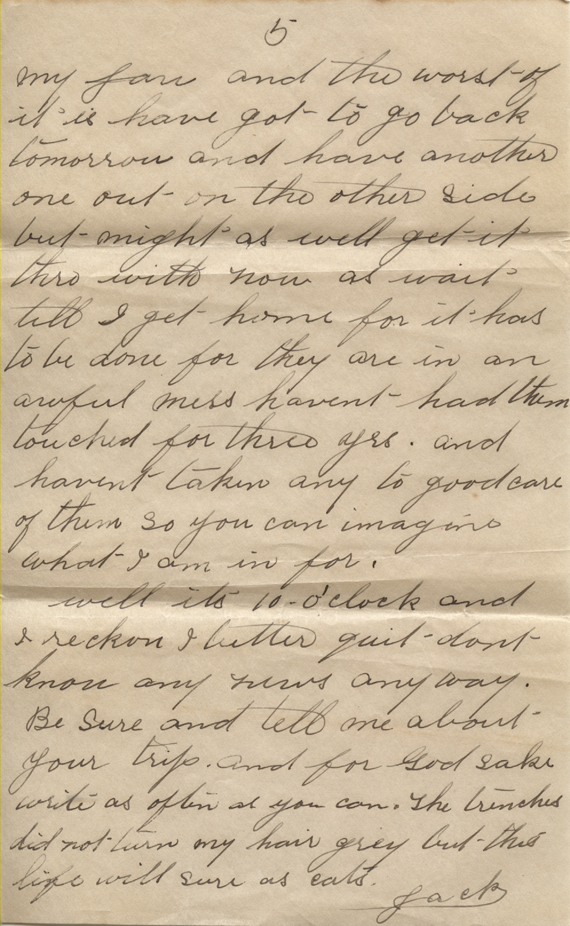 5
my jaw and the worst of
it is have got to go back
tomorrow and have another
one out on the other side
but might as well get it
thro with now as wait
till I get home for it has
to be done for they are in an
awful mess havent had them
touched for three yrs. and
havent taken any to good care
of them so you can imagine
what I am in for.
well its 10-o'clock and
I reckon I better quit dont
know any news any way.
Be sure and tell me about
your trip. and for God sake
write as often as you can. The trenches
did not turn my hair grey but this
life will sure as cats.
Jack